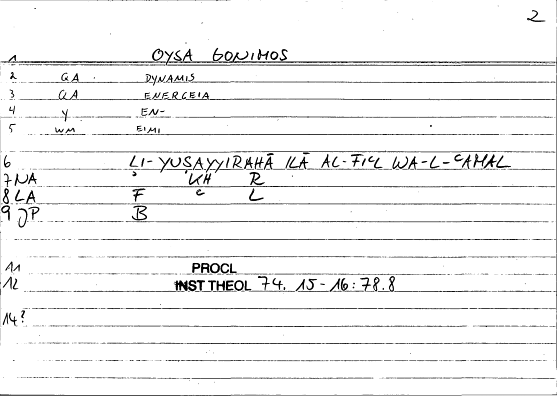 2
1 OYSA GONIMOS
2 QA DYNAMIS
3 QA ENERGEIA
4 Y EN-
5 WM EIMI
6 LI-YUSAYYIRAHĀ ILĀ AL-FICL WA-L-CAMAL
7 NA ʾ KH R
8 LA F C L
9 JP B
11 PROCL
12 INST THEOL 74. 15-16:78.8
14?